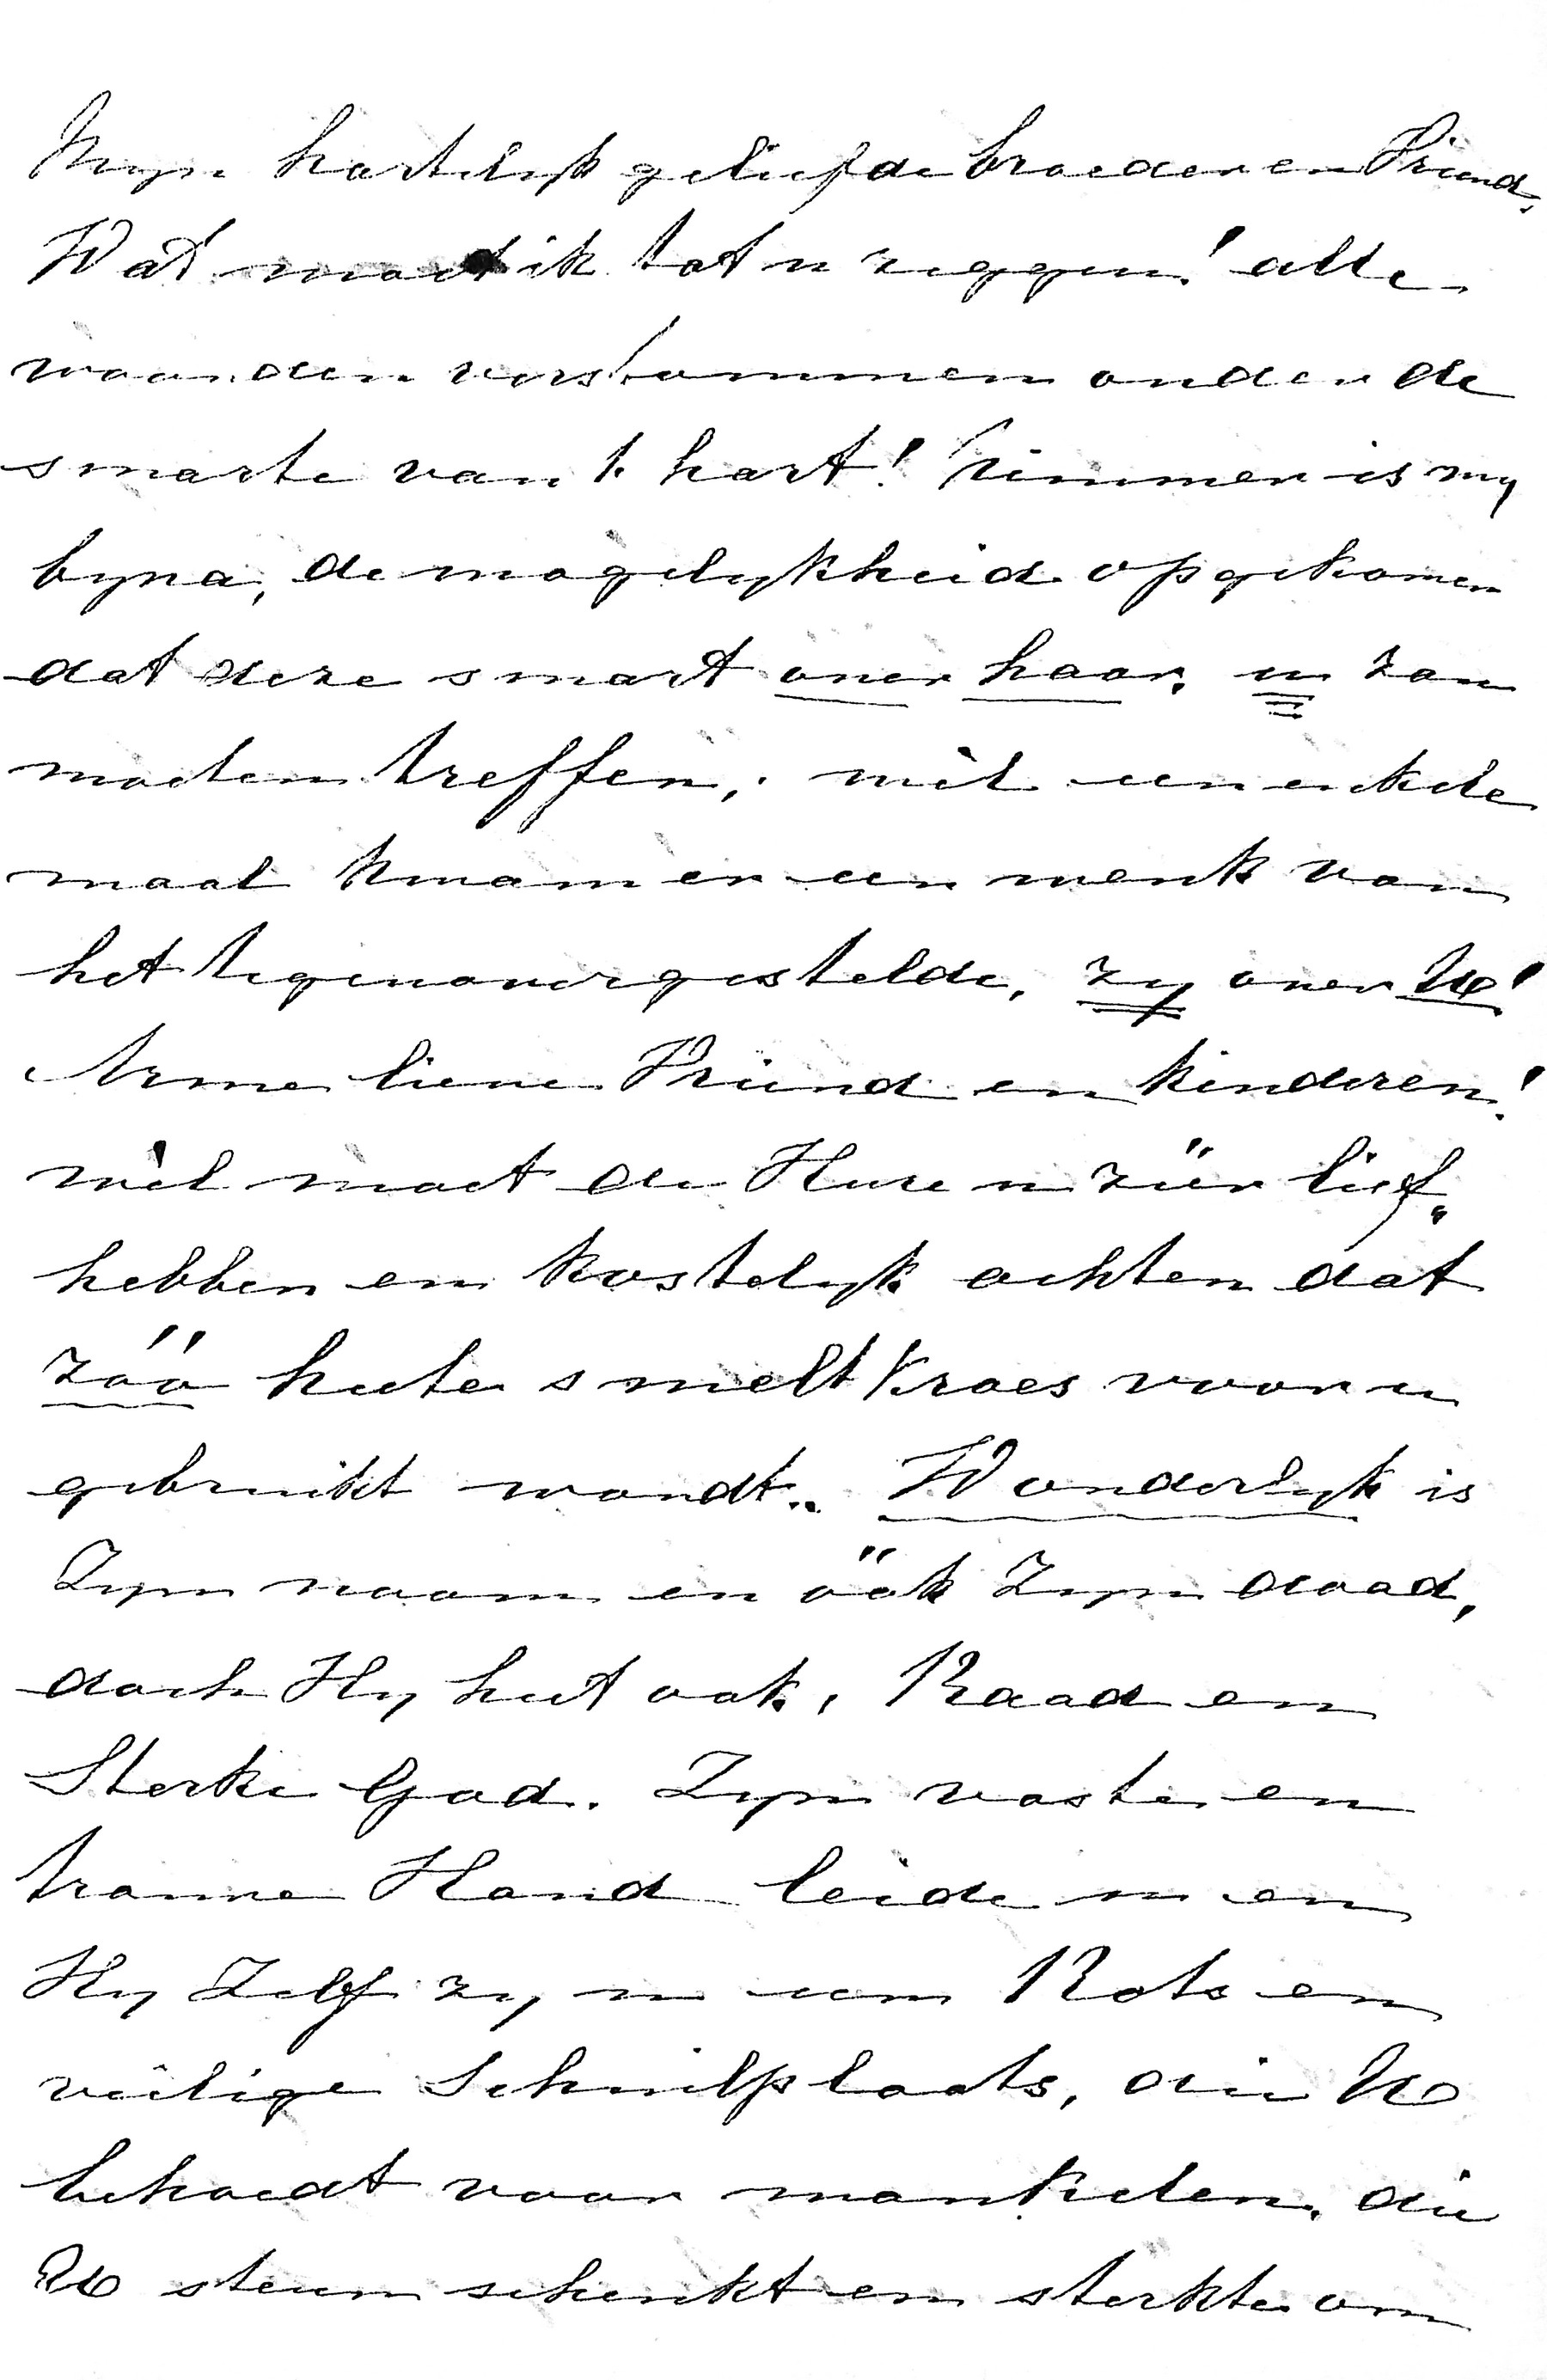 Myn hartelyk geliefde broeder en Vriend,
Wat moet ik tot u zeggen! alle
woorden verstommen onder de
smarte van 't hart! Nimmer is my
byna, de mogelykheid opgekomen
dat deze smart over haar, u zou
moeten treffen; wèl een enkele
maal kwam er een wenk van
het tegenovergestelde, zy over U!
Arme lieve Vriend en kinderen!
wèl moet de Heere u zéér lief„
hebben en kostelyk achten dat
zóó heete smeltkroes voor u
gebruikt wordt.. Wonderlyk is
Zyn naam en óók Zyn daad,
doch Hy heet ook, Raad en
Sterke God. Zyn vaste en
trouwe Hand leide u en
Hy Zelf zy u een Rots en
veilige Schuilplaats, die U
behoedt voor wankelen, die
U steun schenkt en sterkte om